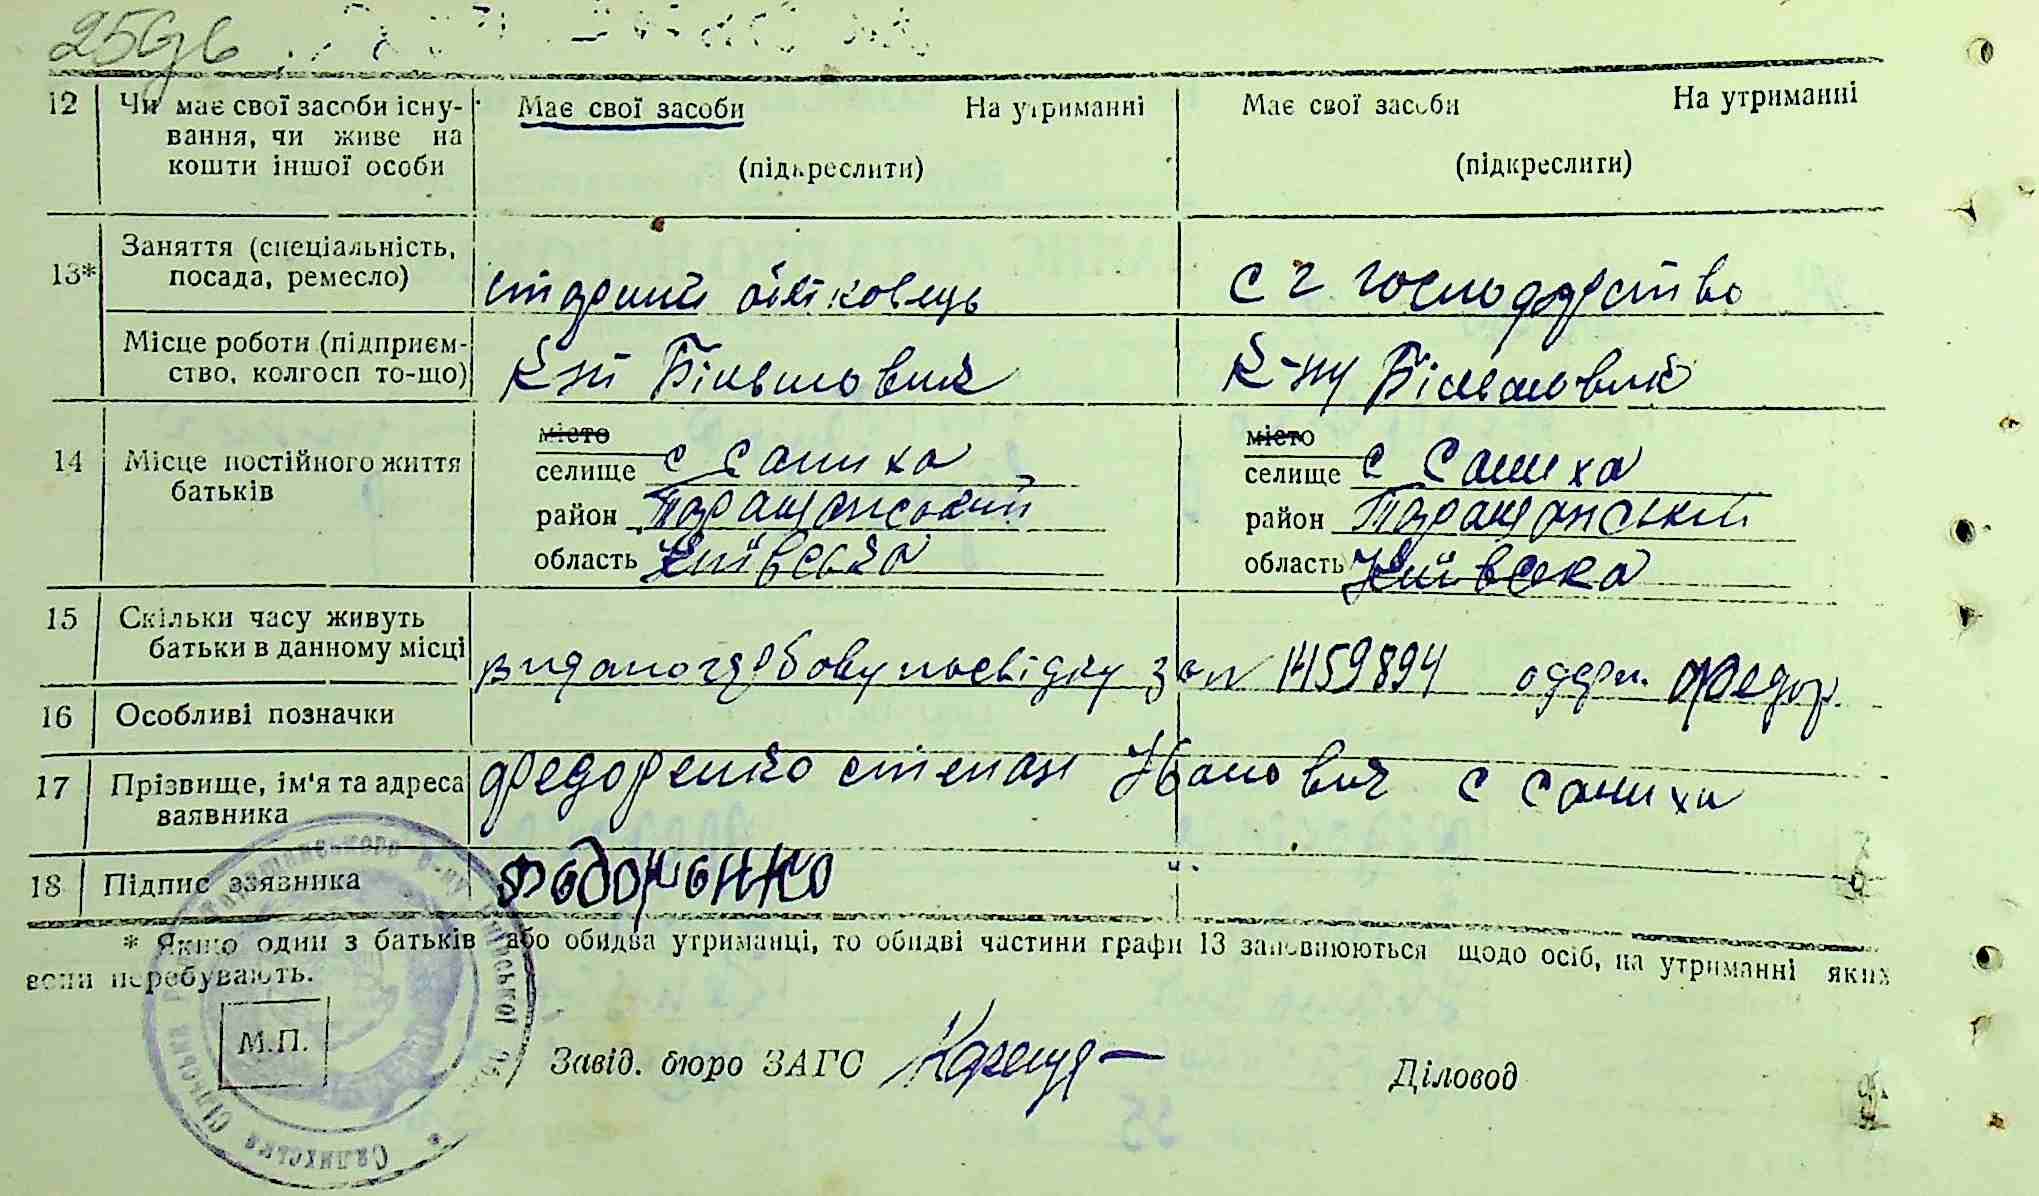 12 Чи має свої засоби існу- Має свої засоби На утриманні Має свої засоби На утриманні
вання, чи живе на
кошти іншої особи (підкреслити) (підкреслити)
13* Заняття (спеціальність,
посада, ремесло) старший с г господарство
Місце роботи (підприєм-
ство, колгосп то-що) Більшовик к-пу Більшовик
місто місто
14 Місце постійного життя селище с Саниха селище с Саниха
батьків район Таращанський район Таращанський
область Київська область Київська
15 Скільки часу живуть
батьки в данному місці видано гербову посвідку за № 1459894 одерж. Федор.
16 Особливі позначки
17 Прізвище, ім'я та адреса Федоренко Степан Іванович с Саниха
заявника
18 Підпис заявника Федоренко
* Якщо один з батьків або обидва утриманці, то обидві частини графи 13 заповнюються щодо осіб, на утриманні яких
вони перебувають.
М.П.
Завід. бюро ЗАГС Діловод